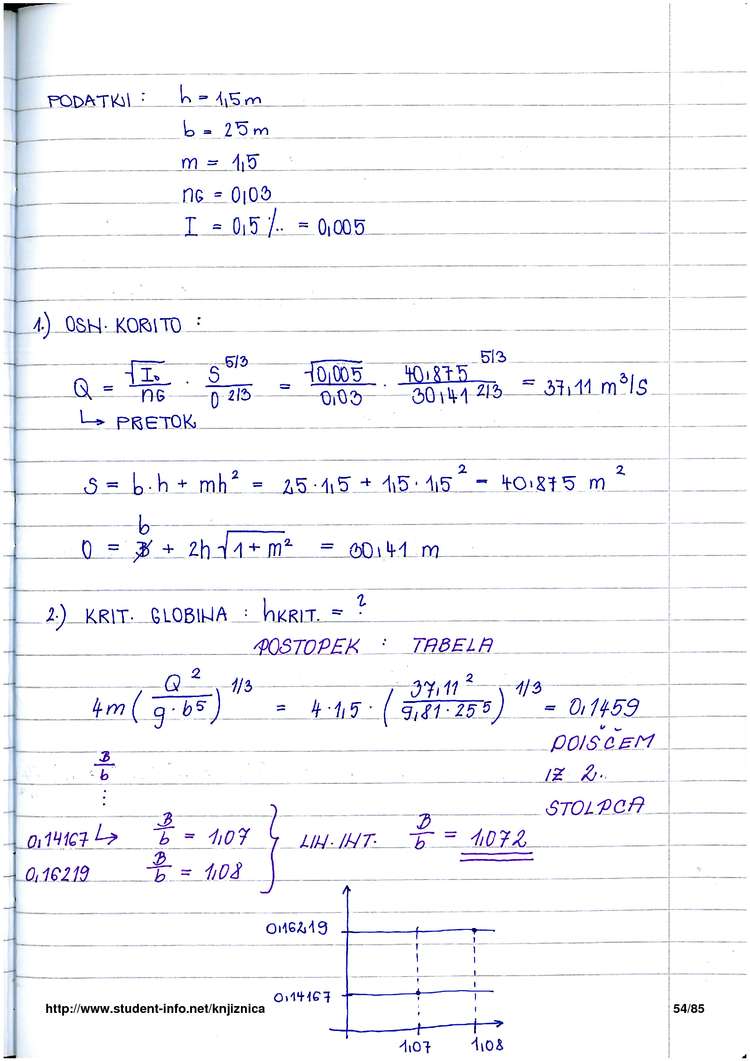 PODATKI: h = 1,5 m
b = 25 m
m = 1,5
nG = 0,03
I = 0,5 ‰ = 0,005
1.) OSN. KORITO :
Q = √I₀ / nG · S^5/3 / O^2/3 = √0,005 / 0,03 · 40,875^5/3 / 30,41^2/3 = 37,11 m³/s
↳ PRETOK
S = b·h + mh² = 25·1,5 + 1,5·1,5² = 40,875 m²
b
O = B + 2h√1+m² = 30,41 m
2.) KRIT. GLOBINA : hKRIT. = ?
POSTOPEK : TABELA
4m (Q² / g·b⁵)^1/3 = 4·1,5·(37,11² / 9,81·25⁵)^1/3 = 0,1459
POIŠČEM
B/b
IZ 2.
⋮
STOLPCA
0,14167 ↳ B/b = 1,07 } LIN. INT. B/b = 1,072
0,16219 B/b = 1,08
0,16219
0,14167
1,07 1,08
http://www.student-info.net/knjiznica 54/85